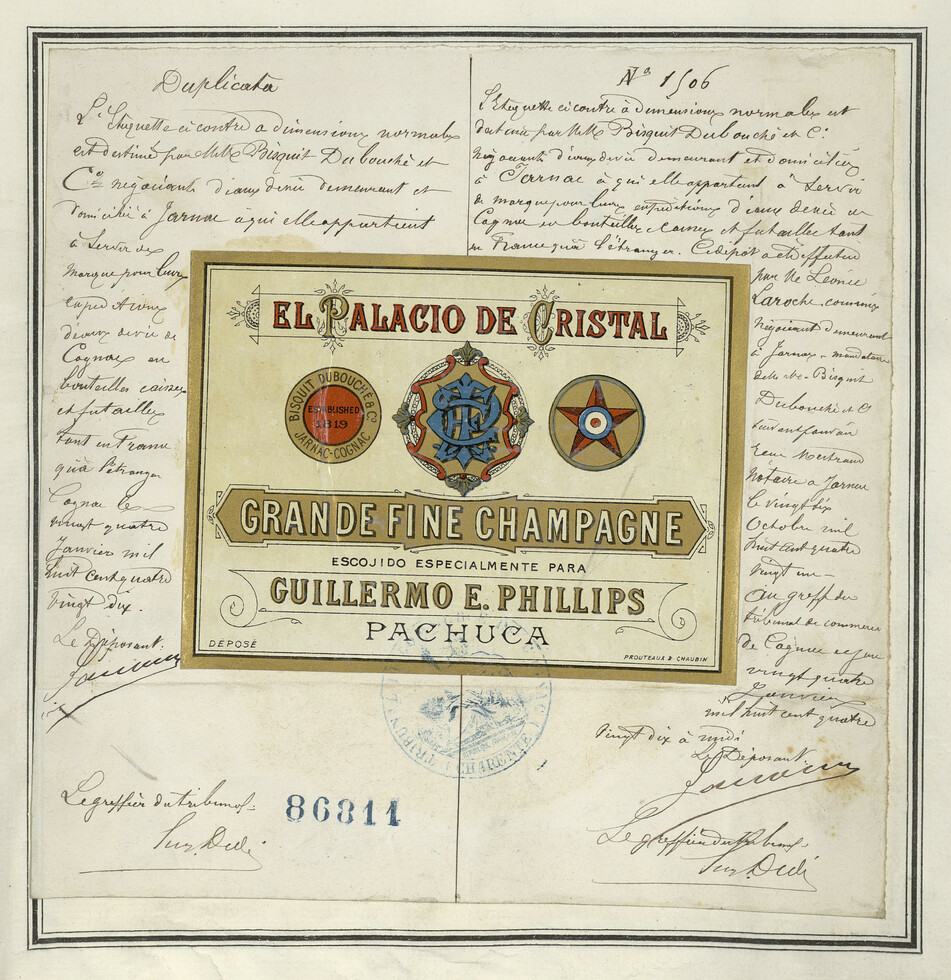 Duplicata
L'Etiquette ci contre a dimensions normales
est destinée par MM Bisquit Dubouché et
Cie négociants d'eaux de vie demeurant et
domiciliés à Jarnac à qui elle appartient
à servir de
marque pour leurs
expéditions
d'eaux de vie de
Cognac en
bouteilles caisses
et futailles
tant en France
qu'à l'étranger
Cognac le
vingt quatre
Janvier mil
huit cent quatre
vingt dix.
Le Déposant
Le greffier du tribunal
86811
No 1506
L'Etiquette ci contre à dimensions normales est
destinée par MM Bisquit Dubouché et Cie
négociants d'eaux de vie demeurant et domiciliés
à Jarnac à qui elle appartient à servir
de marque pour leurs expéditions d'eaux de vie de
Cognac en bouteilles caisses et futailles tant
en France qu'à l'étranger. Ce dépôt a été effectué
par Me Léonce
Laroche, commis
négociant demeurant
à Jarnac mandataire
de MM Bisquit
Dubouché et C
suivant pouvoir
notaire à Jarnac
le vingt six
Octobre mil
huit cent quatre
vingt un
au greffe du
tribunal de commerce
de Cognac ce jour
vingt quatre
Janvier
mil huit cent quatre
vingt dix à midi
Le Déposant
Le greffier du tribunal
EL PALACIO DE CRISTAL
BISQUIT DUBOUCHÉ & Co
ESTABLISHED
1819
JARNAC-COGNAC
GRANDE FINE CHAMPAGNE
ESCOJIDO ESPECIALMENTE PARA
GUILLERMO E. PHILLIPS
PACHUCA
DÉPOSÉ
PROUTEAUX & CHAUBIN
TRIBUNAL
CHARENTE